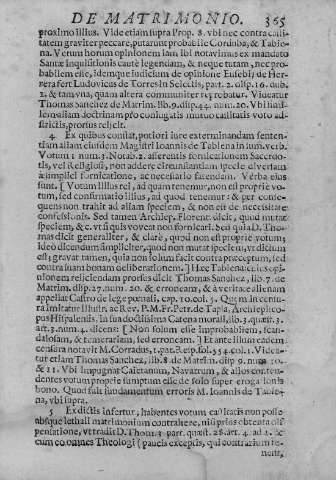 DE MATRIMONIO. 365
proximo illius. Vide etiam supra Prop. 8. vbi nec contra casti-
tatem graviter peccare, putarunt probabile Corduba, & Tabie-
na. Verum horum opinionem iam ibi notavimus ex mandato
Sanctæ inquisitionis cautè legendam, & neque tutam, nec pro-
babilem esse, idemque iudicium de opinione Eusebij de Her-
rera fert Ludovicus de Torres in Selectis, part. 2. disp. 16. dub.
2, & tanquam, quam altera communiter reprobatur. Videatur
Thomas Sanchez de Matrim. lib. 9. disp. 44. num. 20. Vbi
malam doctrinam pro coniugatis mutuo castitatis voto ad-
strictis, prorsus rejicit.
4. Ex quibus constat, potiori iure exterminandam senten-
tiam aliam eiusdem Magistri Ioannis de Tabiena in sum. verb.
Votum 1 num 3. Notab. 2. asserentis fornicationem Sacerdo-
tis, vel Religiosi, non addere circumstantiam specie diversam
à simplici fornicatione, ac necessario fatendam. Verba eius
sunt. [Votum illius rei, ad quam tenemur, non est proprie vo-
tum, sed confirmatio illius, ad quod tenemur: & per conse-
quens non trahit ad aliam speciem, & non est de necessitate
confessionis. Sed tamen Archiep. Florent. dicit, quod mutat
speciem, & c. vt si quis voveat non fornicari. Sed quia D. Tho-
mas dicit generaliter, & clarè, quod non est proprie votum;
ideò dicendum simpliciter, quod non mutat speciem, vt dictum
est; gravat tamen, quia non solum facit contra præceptum, sed
contra suam bonam deliberationem.] Hæc Tabiena cuius opi-
nionem reijciendam prorsus dicit Thomas Sanchez, lib. 7. de
Matrim. disp. 27. num. 20. & erroneam, & à veritate alienam
appellat Castro de lege pœnali, cap. 10. col. 3. Quem in censu-
ra imitatur Illustr. ac Rev. P. M. Fr. Petr. de Tapia. Archiepisco-
pus Hispalensis. in sua doctissima Catena morali, lib. 3. quæst. 3.
art. 3. num. 4. dicens: [Non solum esse improbabilem, scan-
dalosam, & temerariam, sed erroneam.] Et ante illum eadem
censura notavit M. Corradus, 1. part. Resp. fol. 354 col. 1. Videa-
tur etiam Thomas Sanchez, lib. 8. de Matrim. disp 9. num 10.
& 11. Vbi impugnat Caietanum, Navarrum, & alios conten-
dentes votum proprie sumptum esse de solo super eroga ionis
bono. Quod fuit fundamentum erroris M. Ioannis de Tabie-
na, vbi supra.
5 Ex dictis infertur, habentes votum castitatis non posse
absque lethali matrimonium contrahere, nisi prius obtenta dis-
pensatione, vt tradit D. Thom. 3 part. quæst. 28. art. 4. ad 1. &
cum eo omnes Theologi (paucis exceptis, qui contrarium te-
nent,